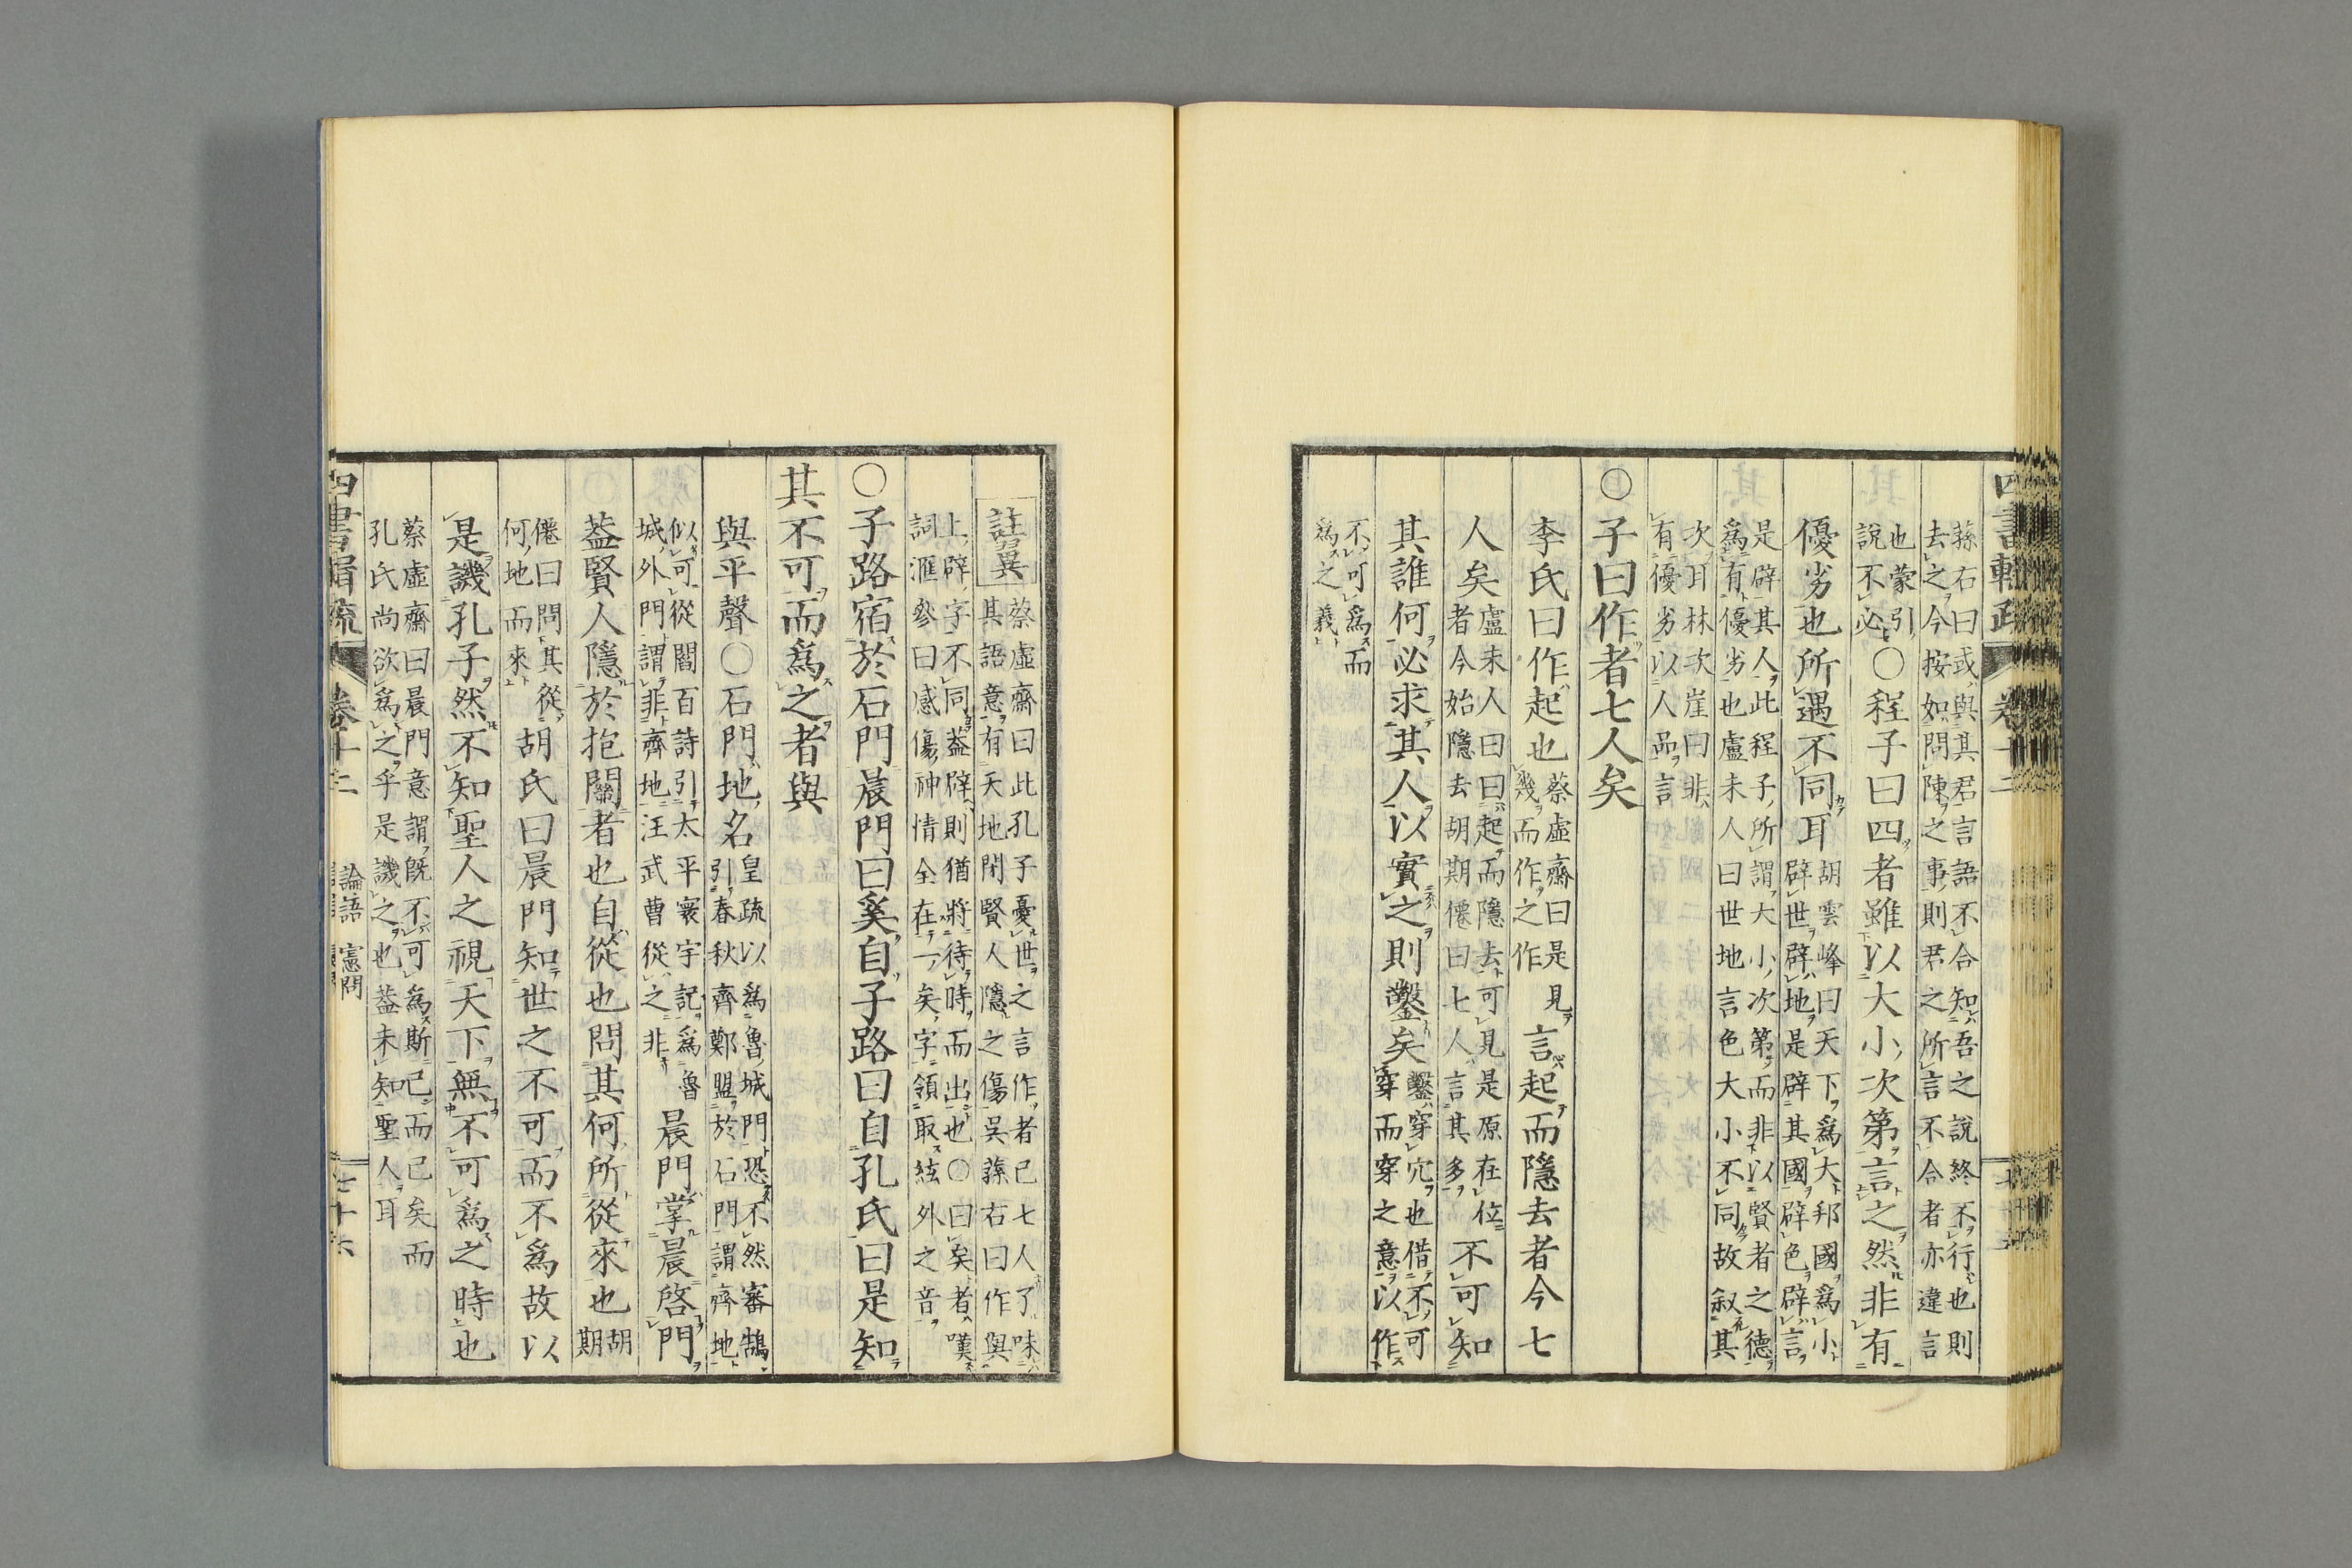 蓀右曰或與其君言語不合知吾之說終不行也則
去之今按如問陳之事則君之所言不合者亦違言
也蒙引
說不必
○程子曰四者雖以大小次第言之然非有
優劣也所遇不同耳
胡雲峰曰天下爲大邦國爲小
辟世辟地是辟其國辟色辟言
是辟其人此程子所謂大小次第而非以賢者之德
爲有優劣也盧未人曰世地言色大小不同故叙其
次耳林次崖曰非
有優劣以人品言
○子曰作者七人矣
李氏曰作起也
蔡虛齋曰是見
幾而作之作
言起而隱去者今七
人矣
盧未人曰曰起而隱去可見是原在位
者今始隱去胡期僊曰七人言其多
不可知
其誰何必求其人以實之則鑿矣
鑿穿穴也借不可
穿而穿之意以作
不可爲而
爲之義
註異
蔡虛齋曰此孔子憂世之言作者已七人了味
其語意有天地閉賢人隱之傷吳蓀右曰作與
上辟字不同葢辟則猶將待時而出也○曰矣者嘆
詞滙參曰感傷神情全在一矣字領取絃外之音
○子路宿於石門晨門曰奚自子路曰自孔氏曰是知
其不可而爲之者與
與平聲○石門地名
皇疏以爲魯城門恐不然審鵠
引春秋齊鄭盟於石門謂齊地
似可從閻百詩引太平寰宇記爲魯
城外門謂非齊地汪武曹從之非
晨門掌晨啓門
葢賢人隱於抱關者也自從也問其何所從來也
胡
期
僊曰問其從
何地而來
胡氏曰晨門知世之不可而不爲故以
是譏孔子然不知聖人之視天下無不可爲之時也
蔡虛齋曰晨門意謂旣不可爲斯已而已矣而
孔氏尚欲爲之乎是譏之也葢未知聖人耳
卷十二
論語 憲問
七十六